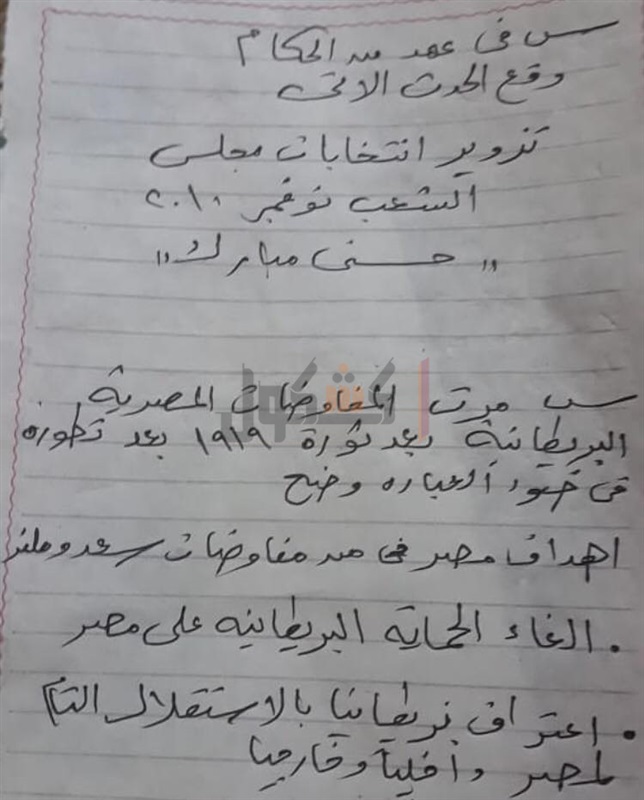 س فى عهد من الحكام
وقع الحدث الاتى
تزوير انتخابات مجلس
الشعب نوفمبر ٢٠١٠
"حسنى مبارك"
كشكول
س مرت المفاوضات المصرية
البريطانية بعد ثورة ١٩١٩ بعد تطوره
فى ضوء العباره وضح
اهداف مصر فى من مفاوضات سعد وملنر
• الغاء الحماية البريطانيه على مصر
• اعتراف بريطانيا بالاستقلال التام
لمصر داخليا وخارجيا